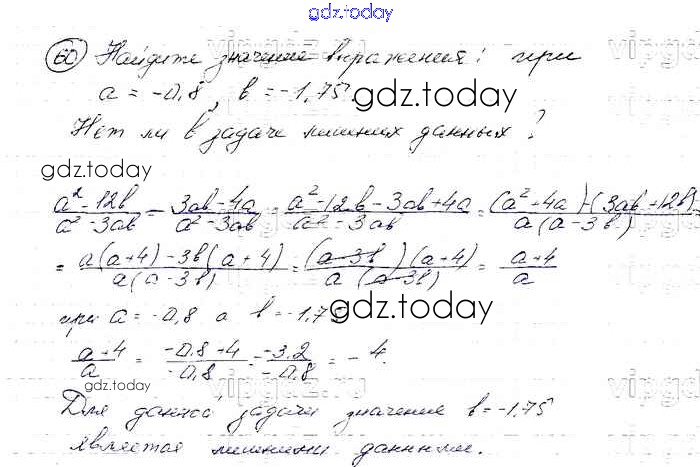 gdz.today
60 Найдите значение выражения: при
a = -0,8, b = -1,75.
gdz.today
Нет ли в задаче лишних данных?
gdz.today
(a² - 12b)/(a² - 3ab) - (3ab - 4a)/(a² - 3ab) = (a² - 12b - 3ab + 4a)/(a² - 3ab) = ((a² + 4a) - (3ab + 12b))/(a(a - 3b)) =
= (a(a + 4) - 3b(a + 4))/(a(a - 3b)) = ((a - 3b)(a + 4))/(a(a - 3b)) = (a + 4)/a
при a = -0,8 а b = -1,75
gdz.today
(a + 4)/a = (-0,8 + 4)/(-0,8) = (-3,2)/(-0,8) = -4.
gdz.today
Для данной задачи значение b = -1,75
является лишними данными.
gdz.today